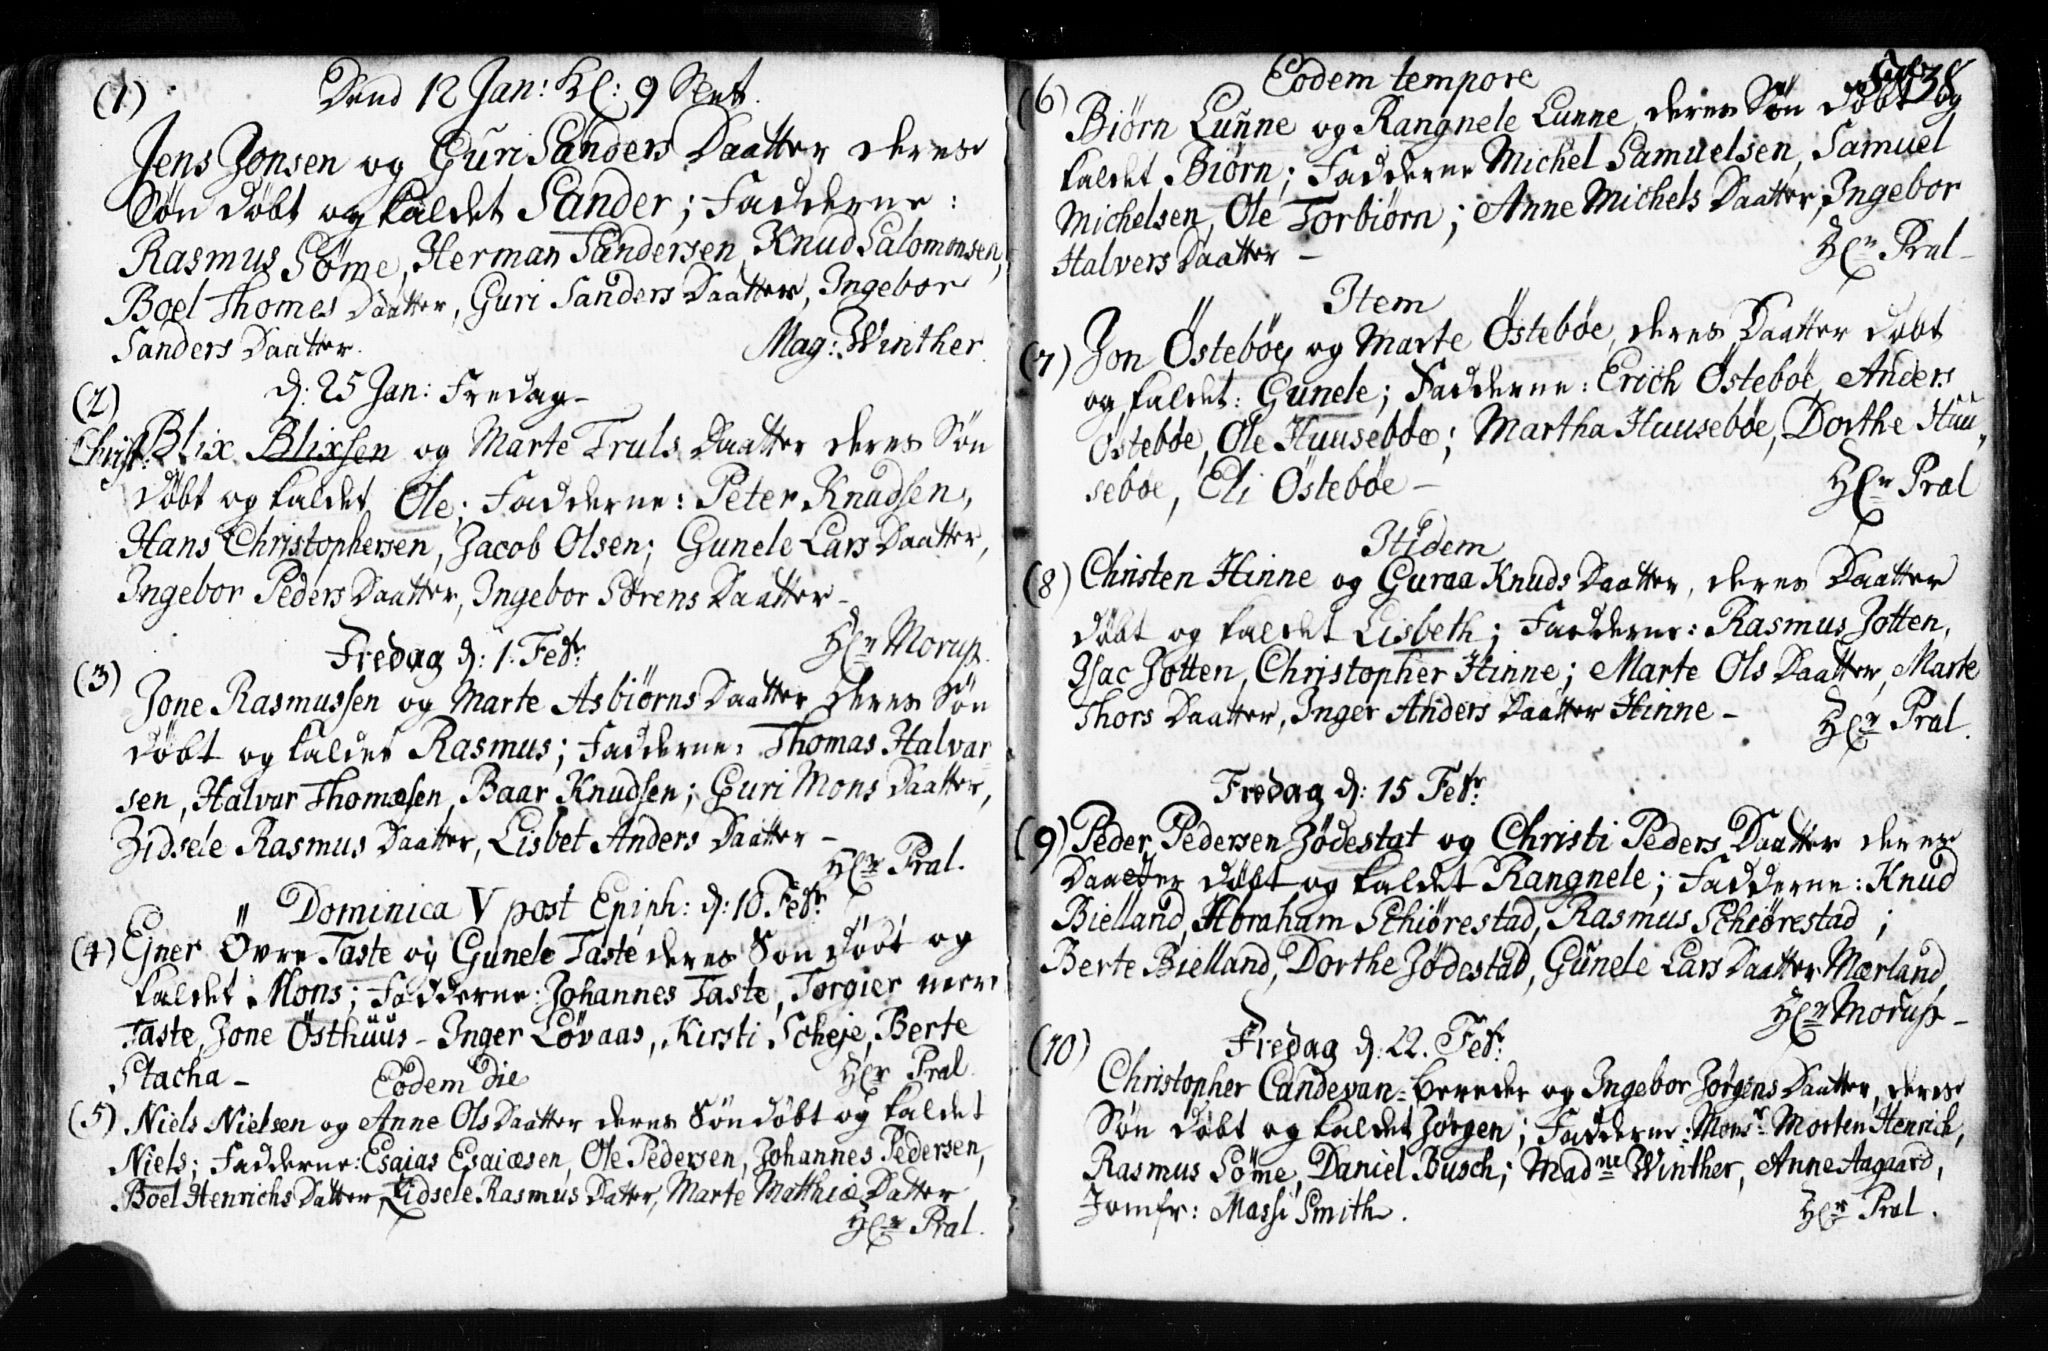 (1) Dend 12 Jan: Kl: 9 Slet.
Jens Jonsen og Guri Sanders Daatter deres
Søn døbt og kaldet Sander; Fadderne:
Rasmus Søme, Herman Sandersen, Knud Salomonsen,
Boel Thomes Daatter, Guri Sanders Daatter, Ingebor
Sanders Daatter. Mag: Winther.
d: 25 Jan: Fredag-
(2) Christ: Blix Blixsen og Marte Truls Daatter deres Søn
døbt og kaldet Ole; Fadderne: Peter Knudsen,
Hans Christophersen, Jacob Olsen; Gunele Lars Daatter,
Ingebor Peders Daatter, Ingebor Sørens Daatter-
Hr Morup.
Fredag d: 1. Febr:
(3) Jone Rasmussen og Marte Asbiørns Daatter deres Søn
døbt og kaldet Rasmus; Fadderne: Thomas Halvar-
sen, Halvar Thomæsen, Baar Knudsen; Guri Mons Daatter,
Zidsele Rasmus Daatter, Lisbet Anders Daatter-
Hr Pral.
Dominica V post Epiph: d: 10 Febr:
(4) Ejner Övre Taste og Gunele Taste deres Søn døbt og
kaldet Mons; Fadderne: Johannes Taste, Torgier nere
Taste, Jone Østhuus- Inger Løvaas, Kirsti Scheje, Berte
Stacha- Hr Pral.
Eodem Die
(5) Niels Nielsen og Anne Ols Daatter deres Søn døbt og kaldet
Niels; Fadderne: Esaias Esaiæsen, Ole Pedersen, Johannes Pedersen,
Boel Henrichs Datter, Zidsele Rasmus Datter, Marte Matthiæ Datter
Hr Pral.
38
(6) Eodem tempore
Biørn Lunne og Rangnele Lunne, deres Søn døbt og
kaldet Biørn; Fadderne Michel Samuelsen, Samuel
Michelsen, Ole Torbiørn; Anne Michels Daatter, Ingebor
Halvers Daatter- Hr Pral-
Item
(7) Jon Östebøe og Marte Östebøe, deres Daatter døbt
og kaldet: Gunele; Fadderne: Erich Östebøe, Anders
Östebøe, Ole Huusebøe; Martha Huusebøe, Dorthe Huu-
sebøe, Eli Östebøe- Hr Pral
Itidem
(8) Christen Hinne og Guraa Knuds Daatter, deres Daatter
døbt og kaldet Lisbeth; Fadderne: Rasmus Jotten,
Isac Jotten, Christopher Hinne; Marte Ols Daatter, Marte
Thors Daatter, Inger Anders Daatter Hinne-
Hr Pral.
Fredag d: 15 Febr:
(9) Peder Pedersen Jødestat og Christi Peders Daatter deres
Daatter døbt og kaldet Rangnele; Fadderne: Knud
Bielland, Abraham Schiørestad, Rasmus Schiørestad;
Berte Bielland, Dorthe Jødestad, Gunele Lars Daatter Mærland,
Hr Morup-
(10) Fredag d: 22. Febr:
Christopher Candevan-bereder og Ingebor Jørgens Daatter, deres
Søn døbt og kaldet Jørgen; Fadderne: Monsr Morten Henrich,
Rasmus Søme, Daniel Busch; Madme Winther, Anne Aagaard,
Jomfr: Massi Smith. Hr Pral.